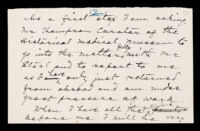 As a first step I am asking
Mr Thompson Curator of the
Historical Medical Museum to
go into the matter fully with Mr
Steel and to report to me
as I have only just returned
from abroad and am under
great pressure of work
When I have all the
before me I will be very